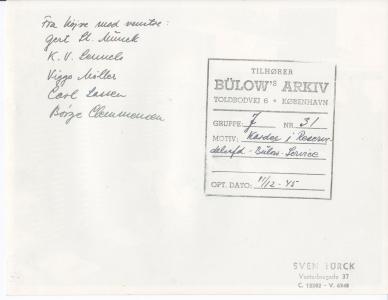 Fra højre mod venstre:
Gert H. Munck
K. V.
Viggo Møller
Carl Larsen
Børge Clemmensen
TILHØRER
BÜLOW'S ARKIV
TOLDBODVEJ 6 • KØBENHAVN
GRUPPE: J NR. 31
MOTIV: i Reserve
delsafd - Bülow - Service
OPT. DATO: 11/12 - 45
SVEN TÜRCK
Vesterbrogade 37
C. 15202 - V. 6948